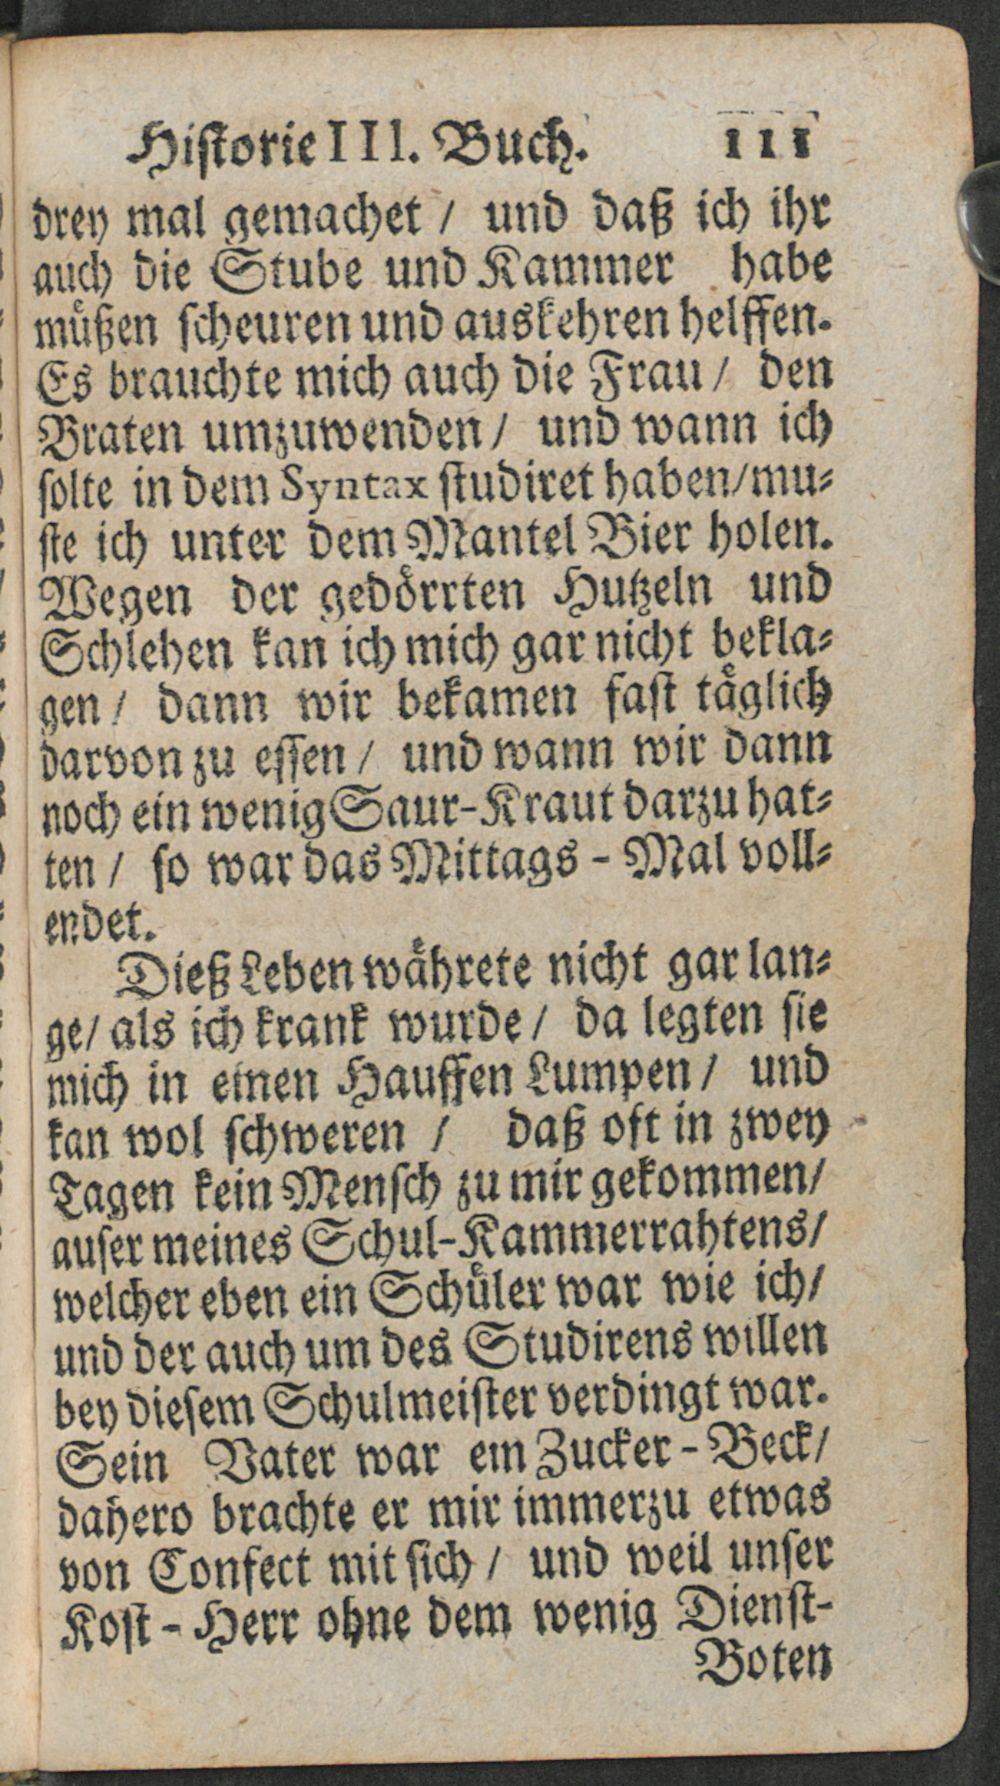 Historie III. Buch. 111
drey mal gemachet / und daß ich ihr
auch die Stube und Kammer habe
müßen scheuren und auskehren helffen.
Es brauchte mich auch die Frau / den
Braten umzuwenden / und wann ich
solte in dem Syntax studiret haben/mu-
ste ich unter dem Mantel Bier holen.
Wegen der gedörrten Hutzeln und
Schlehen kan ich mich gar nicht bekla-
gen / dann wir bekamen fast täglich
darvon zu essen / und wann wir dann
noch ein wenig Saur-Kraut darzu hat-
ten / so war das Mittags - Mal voll-
endet.
Dieß Leben währete nicht gar lan-
ge/ als ich krank wurde / da legten sie
mich in einen Hauffen Lumpen / und
kan wol schweren / daß oft in zwey
Tagen kein Mensch zu mir gekommen/
auser meines Schul-Kammerrahtens/
welcher eben ein Schüler war wie ich/
und der auch um des Studirens willen
bey diesem Schulmeister verdingt war.
Sein Vater war ein Zucker - Beck/
dahero brachte er mir immerzu etwas
von Confect mit sich / und weil unser
Kost - Herr ohne dem wenig Dienst-
Boten